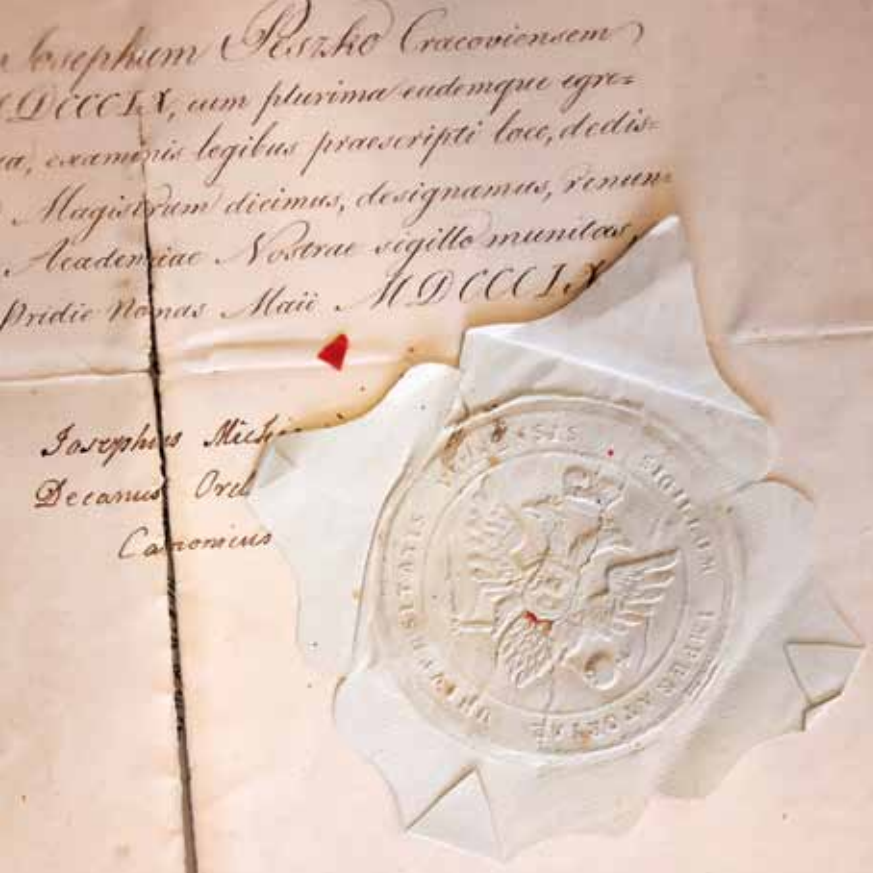 Josephum Peszko Cracoviensem
MDCCCIX, cum plurima eademque egre=
examinis legibus praescripti loco, dedis=
Magistrum dicimus, designamus, renun=
Academiae Nostrae sigillo munitas,
Pridie Nonas Maii MDCCCIX
Josephus
Decanus
Canonicus
SIGILLUM IMPERATORIAE UNIVERSITATIS